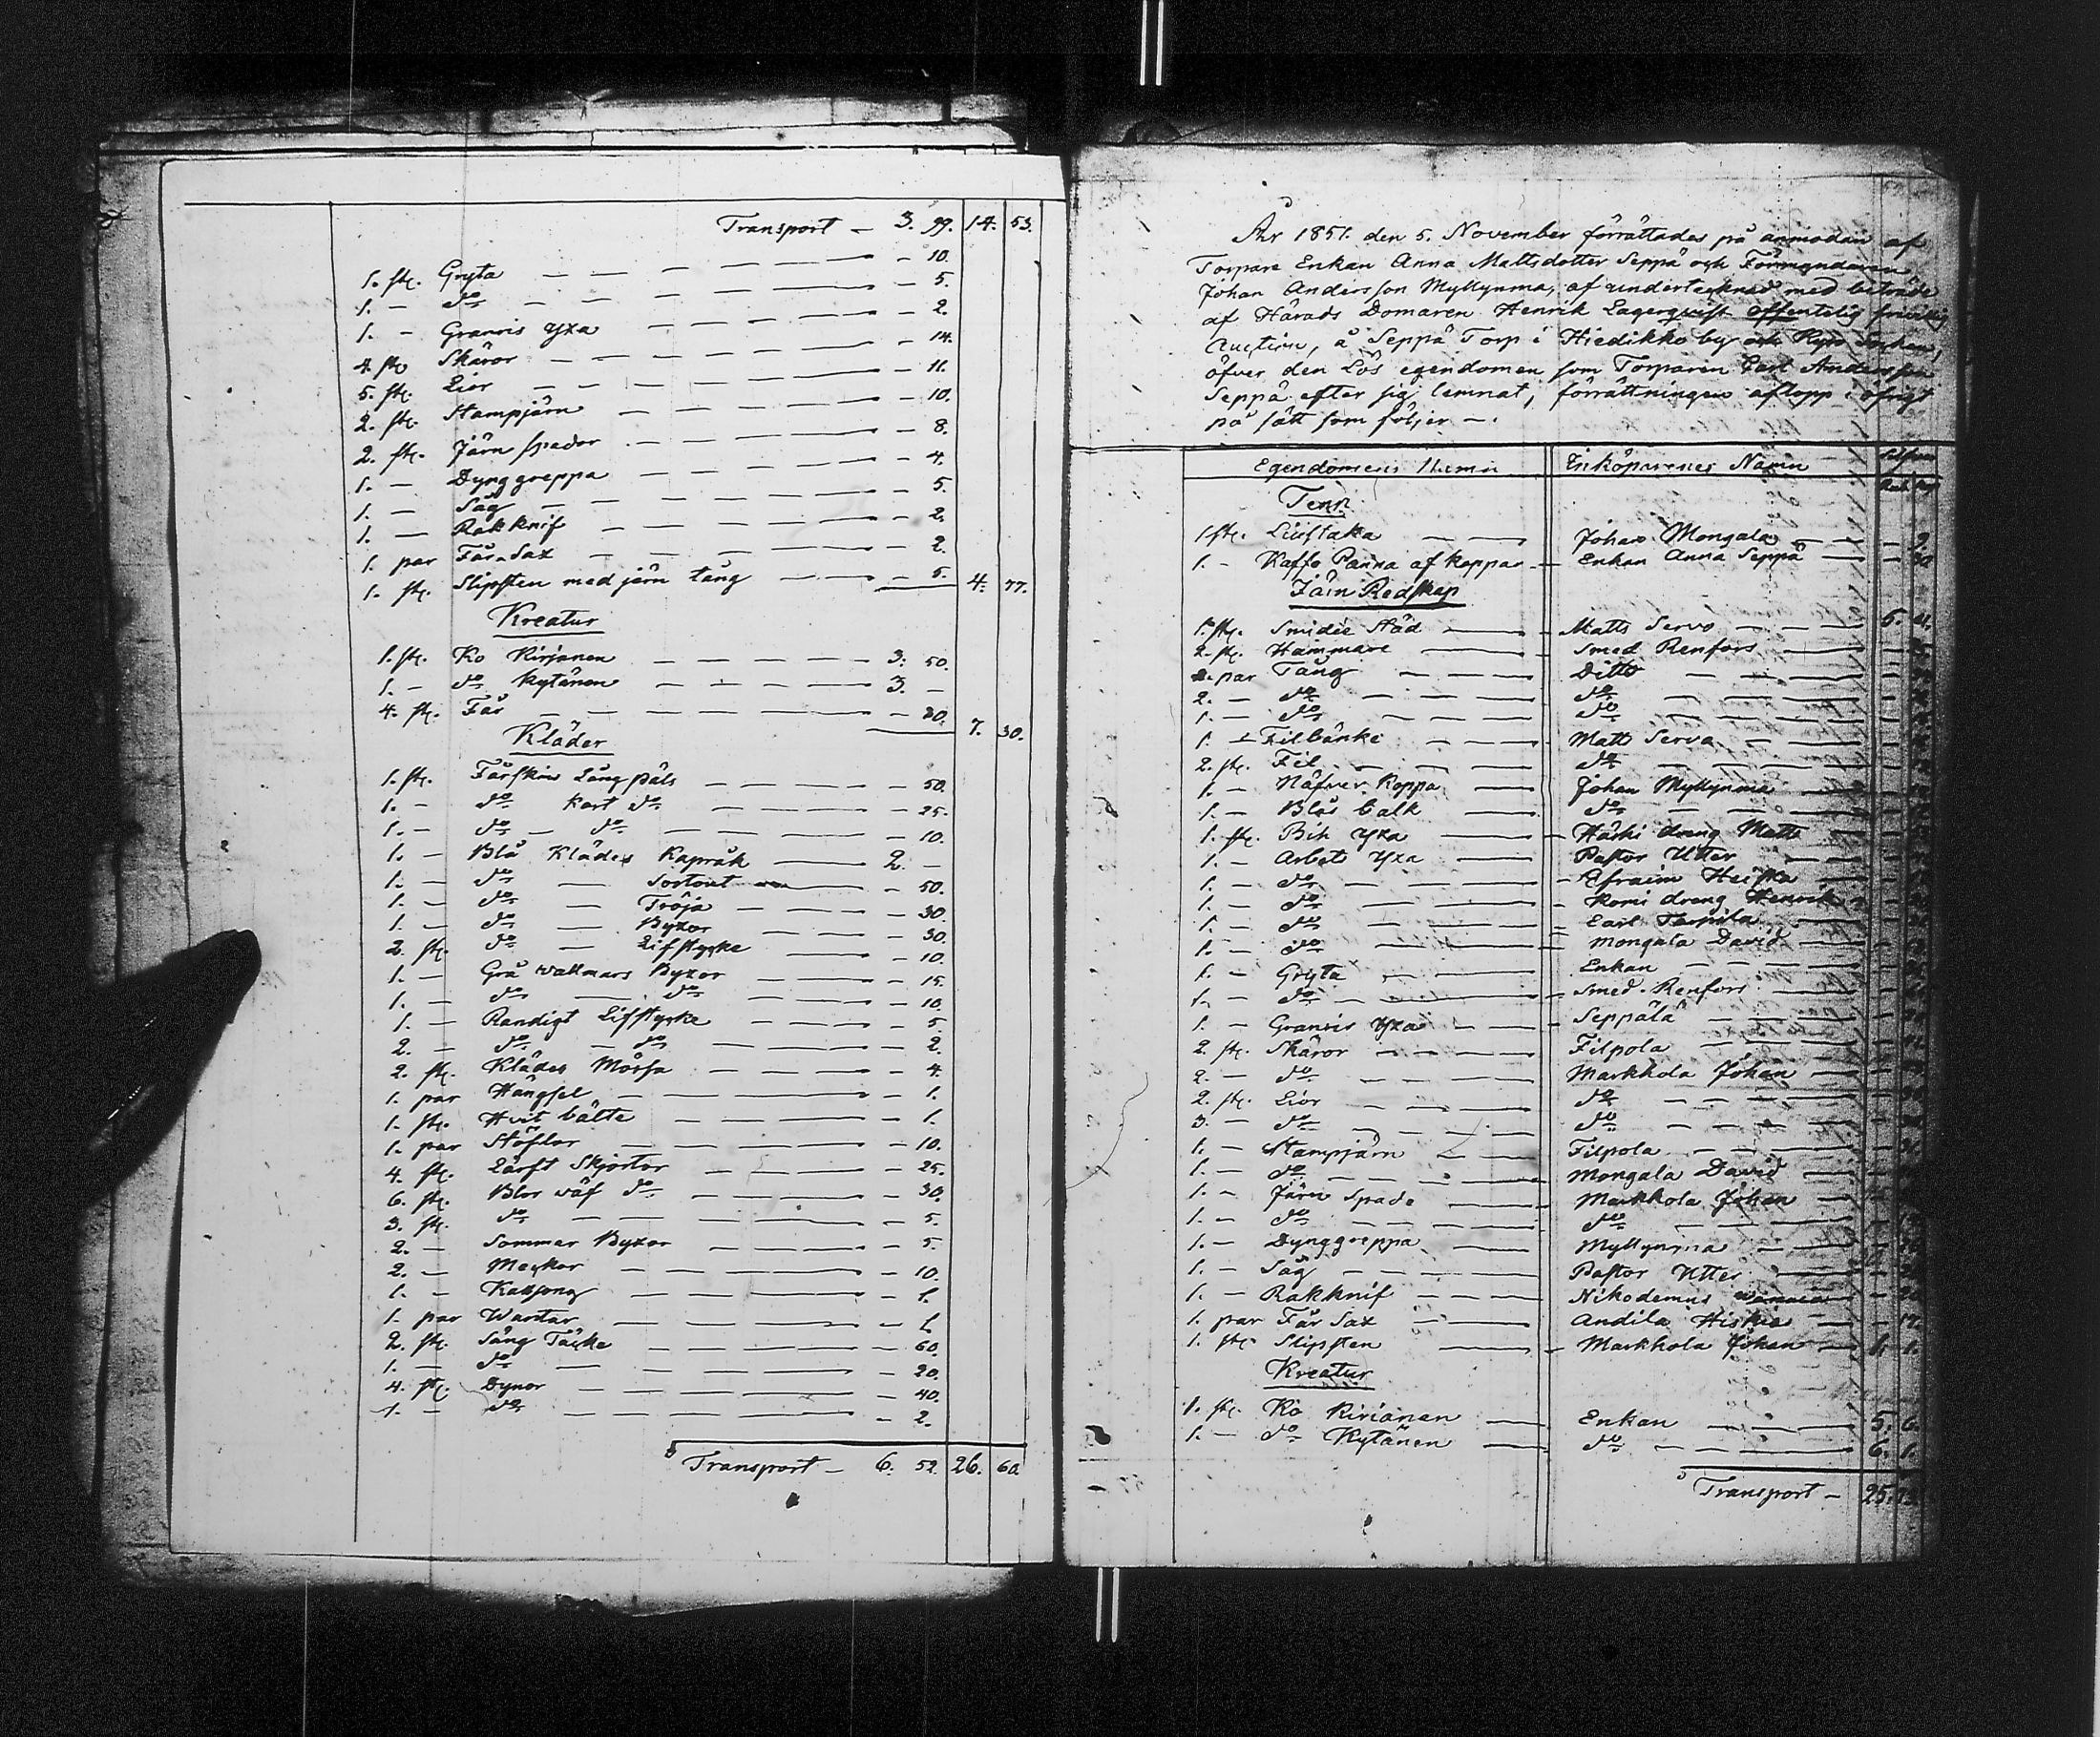 Transport — 3. 99. 14. 53.
1. st. Gryta — 10.
1. — do — 5.
1. — Granris Yxa — 2.
4 st. Skäror — 14.
5. st. Lior — 11.
2. st. Stampjärn — 10.
2. st. Järn spador — 8.
1. — Dynggreppa — 4.
1. — Såg — 5.
1. — Rakknif — 2.
1. par Får Sax — 2.
1. st. Slipsten med järn täng — 5. 4. 77.
Kreatur
1. st. Ko Kirjanen — 3. 50.
1. — do Kytänen — 3. —
4. st. Får — 80. 7. 30.
Kläder
1. st. Fårskins Långpäls — 50.
1. — do kort do — 25.
1. — do — do — 10.
1. — Blå Klädes Kapråk — 2. —
1. — do — Sortout — 50.
1. — do — Tröja — 30.
1. — do — Byxor — 30.
2. st. do — Lifstycke — 10.
1. — Grå wallmars Byxor — 15.
1. — do — do — 10.
1. — Randigt Lifstycke — 5.
2. — do — do — 2.
2. st. Klädes Mössa — 4.
1. par Hängsel — 1.
1. st. Hvit bälte — 1.
1. par Stöflor — 10.
4. st. Lärft Skjortor — 25.
6. st. Blor wäf do — 30.
3. st. do — 5.
2. — Sommar Byxor — 5.
2. — Meckor — 10.
1. — Kalsong — 1.
1. par Wantar — 1.
2. st. Säng Täcke — 60.
1. — do — 20.
4. st. Dynor — 40.
1. — do — 2.
Transport — 6. 52. 26. 60.
År 1851. den 5. November förrättades på anmodan af
Torpare Enkan Anna Mattsdotter Seppä och Förmyndaren
Johan Andersson Myllynma, af undertecknad med biträde
af Härads Domaren Henrik Lagerqvist offentelig frivillig
Auction, å Seppä Torp i Hiedikko by och Kyro Socken,
öfver den Lös egendomen som Torparen Carl Andersson
Seppä efter sig lemnat, förrättningen aflopp i öfrigt
på sätt som följer —.
Egendomens Inköparenes Namn
Tenn
1 st. Liustaka — Johan Mongala — 9.
1. — Kaffe Panna af koppar — Enkan Anna Seppä
Järn Redskap
1. st. Smidie Städ — Matts Servo — 5.
2. st. Hammare — Smed Renfors
2. par Tång — Ditto
2. — do — do
1. — do — do
1. — Filbänke — Matts Serva
2. st. Fil — do
1. — Näfver Koppa — Johan Myllynmä
1. — Blås balk — do
1. st. Bih Yxa — Harki dreng Matts
1. — Arbets Yxa — Pastor Utter
1. — do — Efraim Heiska
1. — do — Komi dreng Henrik
1. — do — Carl Tarpila
1. — do — Mongala David
1. — Gryta — Enkan
1. — do — Smed Renfors
1. — Granris Yxa — Seppälä
2. st. Skäror — Filpola
2. — do — Markkola Johan
2. st. Lior — do
3. — do — do
1. — Stampjärn — Filpola
1. — do — Mongala David
1. — Järn Spade — Markkola Johan
1. — do — do
1. — Dynggreppa — Myllynma
1. — Såg — Pastor Utter
1. — Rakknif — Nikodemus
1. par Får Sax — Andila Hiskia
1. st. Slipsten — Markkola Johan — 1. 1.
Kreatur
1. st. Ko Kirianen — Enkan — 5. 6.
1. — do Kytänen — do — 6. 1.
Transport — 25.